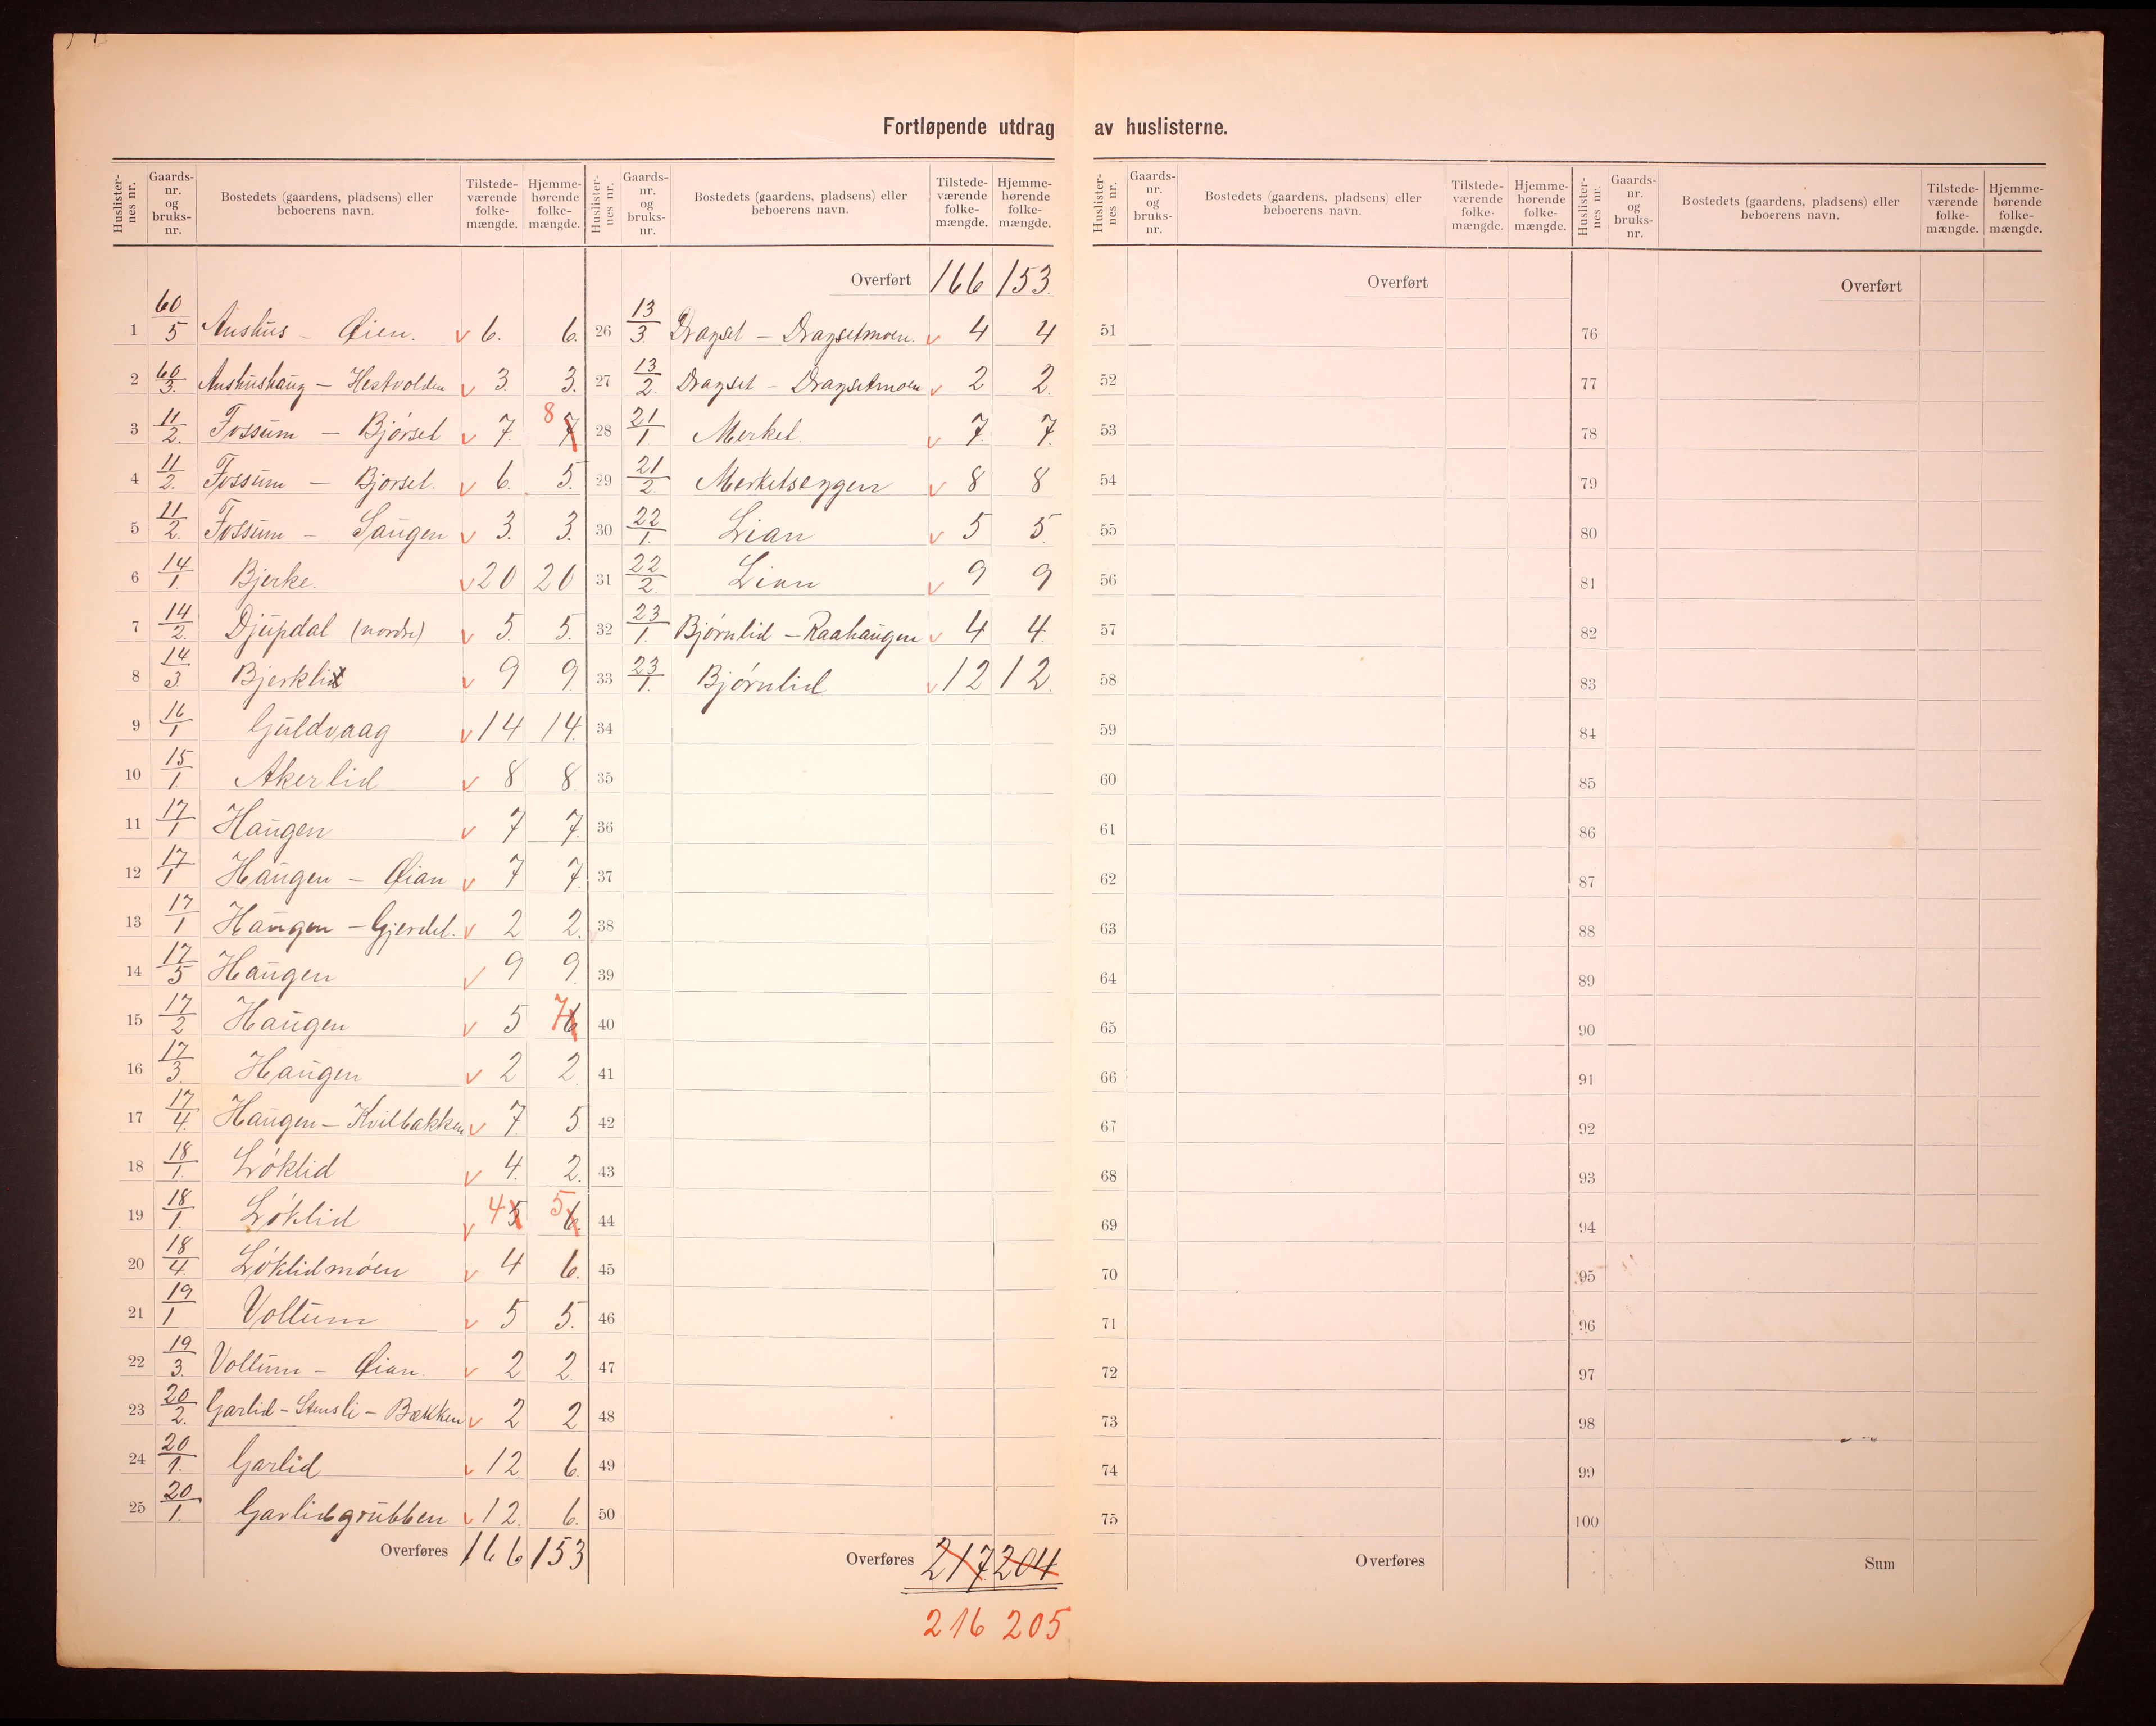 Fortløpende utdrag av huslisterne.
Huslister-nes nr. | Gaards-nr. og bruks-nr. | Bostedets (gaardens, pladsens) eller beboerens navn. | Tilstede-værende folke-mængde. | Hjemme-hørende folke-mængde.
1 60/5 Aushus – Øien. v 6. 6.
2 60/3. Aushushaug – Hestvolden v 3. 3.
3 11/2. Fossum – Bjørset v 7. 8 7
4 11/2. Fossum – Bjørset. v 6. 5.
5 11/2. Fossum – Saugen v 3. 3.
6 14/1. Bjerke. v 20 20
7 14/2. Djupdal (nordre) v 5. 5.
8 14/3 Bjerklid v 9 9.
9 16/1 Guldvaag v 14 14.
10 15/1. Akerlid v 8 8.
11 17/1 Haugen v 7 7.
12 17/1 Haugen – Øian v 7 7.
13 17/1 Haugen – Gjerdet. v 2 2.
14 17/5 Haugen v 9 9.
15 17/2 Haugen v 5 7 6
16 17/3. Haugen v 2 2.
17 17/4. Haugen – Kvilbakken v 7 5.
18 18/1. Løklid v 4. 2.
19 18/1. Løklid v 4 5 5 6
20 18/4. Løklidmoen v 4 6.
21 19/1 Voltum v 5 5.
22 19/3. Voltum – Øian. v 2 2.
23 20/2. Garlid – Stensli – Bækken v 2 2
24 20/1. Garlid v 12 6.
25 20/1. Garlidgrubben v 12. 6.
Overføres 166 153
Huslister-nes nr. | Gaards-nr. og bruks-nr. | Bostedets (gaardens, pladsens) eller beboerens navn. | Tilstede-værende folke-mængde. | Hjemme-hørende folke-mængde.
Overført 166 153.
26 13/3. Dragset – Dragsetmoen. v 4 4
27 13/2. Dragset – Dragsetmoen v 2 2.
28 21/1. Merket. v 7. 7.
29 21/2. Merketseggen v 8 8
30 22/1. Lian v 5 5.
31 22/2. Lian v 9 9
32 23/1. Bjørnlid – Raahaugen v 4 4.
33 23/1. Bjørnlid v 12 12.
34
35
36
37
38
39
40
41
42
43
44
45
46
47
48
49
50
Overføres 217 204
216 205
Huslister-nes nr. | Gaards-nr. og bruks-nr. | Bostedets (gaardens, pladsens) eller beboerens navn. | Tilstede-værende folke-mængde. | Hjemme-hørende folke-mængde.
Overført
51
52
53
54
55
56
57
58
59
60
61
62
63
64
65
66
67
68
69
70
71
72
73
74
75
Overføres
Huslister-nes nr. | Gaards-nr. og bruks-nr. | Bostedets (gaardens, pladsens) eller beboerens navn. | Tilstede-værende folke-mængde. | Hjemme-hørende folke-mængde.
Overført
76
77
78
79
80
81
82
83
84
85
86
87
88
89
90
91
92
93
94
95
96
97
98
99
100
Sum